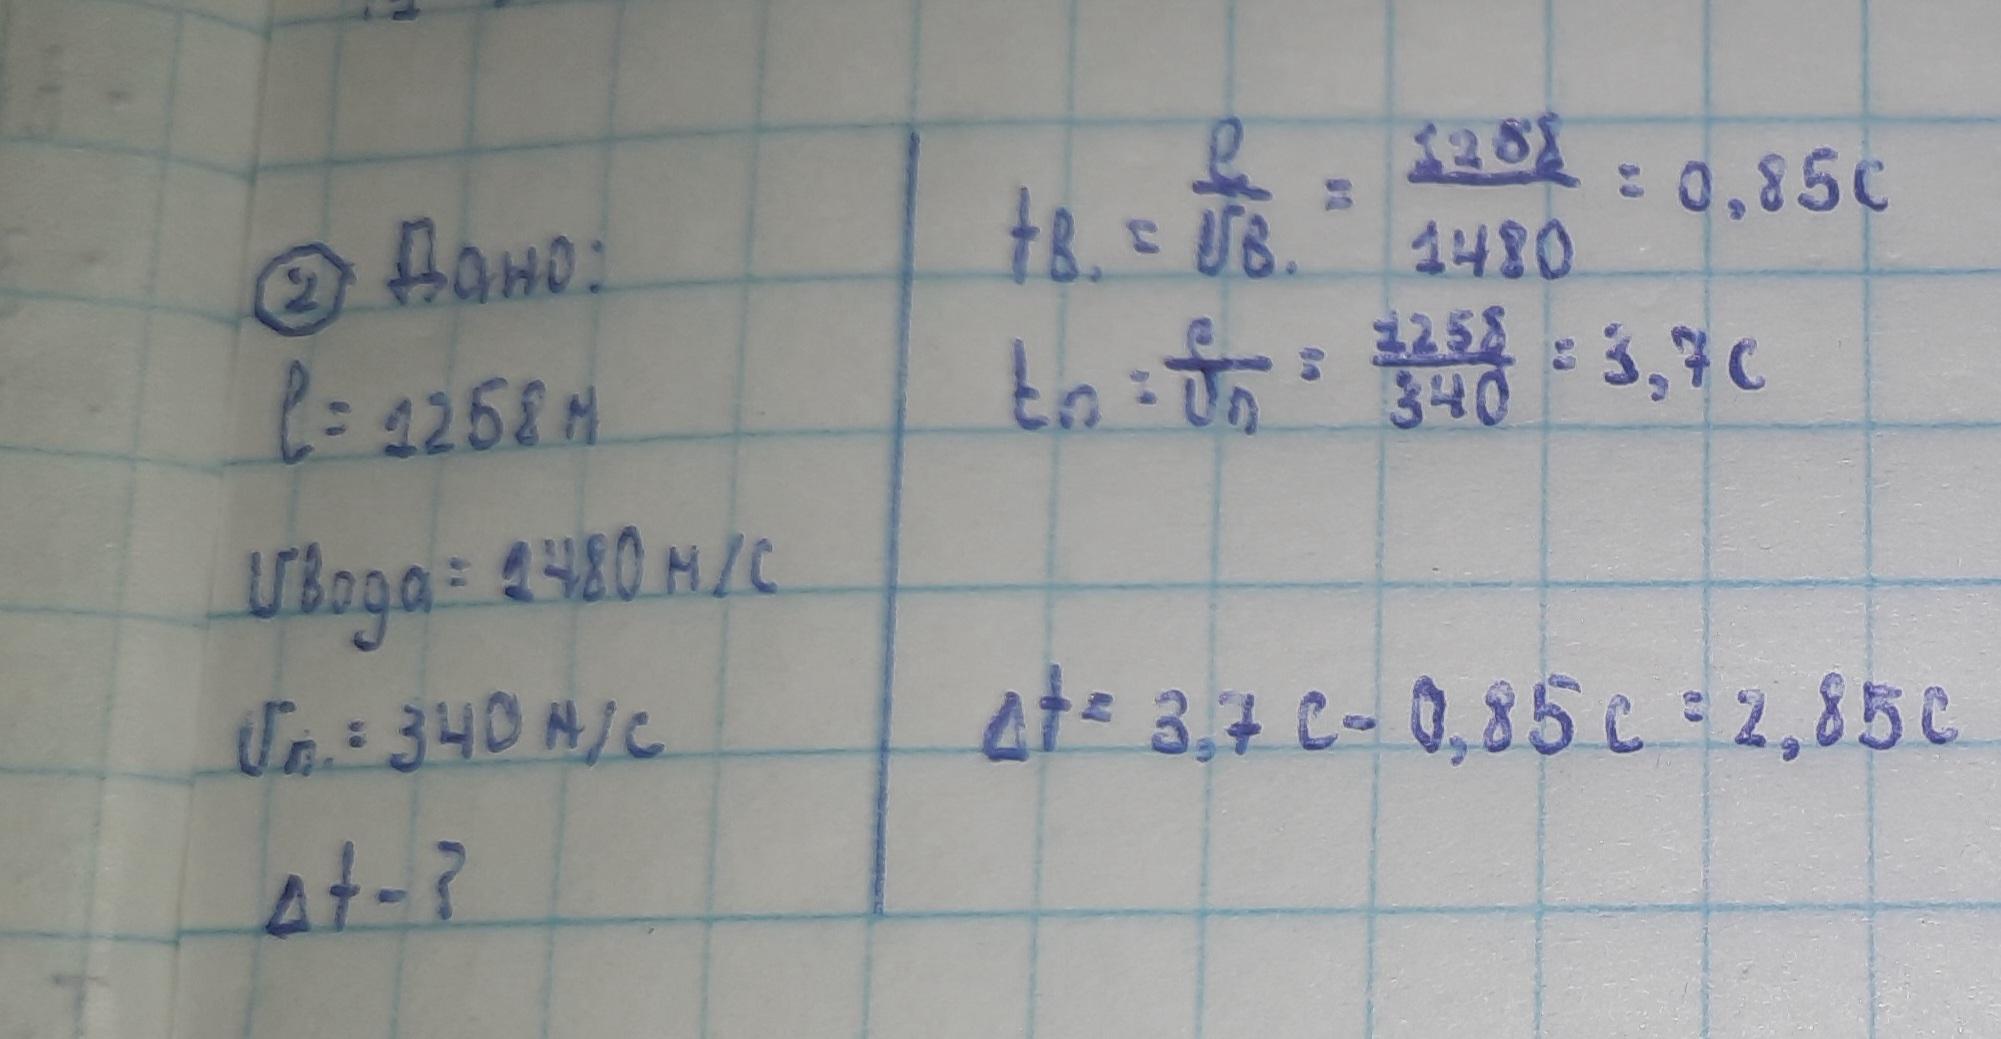 ② Дано:
l = 1258 м
υвода = 1480 м/с
υп. = 340 м/с
Δt - ?
tв. = l/υв. = 1258/1480 = 0,85с
tп = l/υп = 1258/340 = 3,7с
Δt = 3,7с - 0,85с = 2,85с